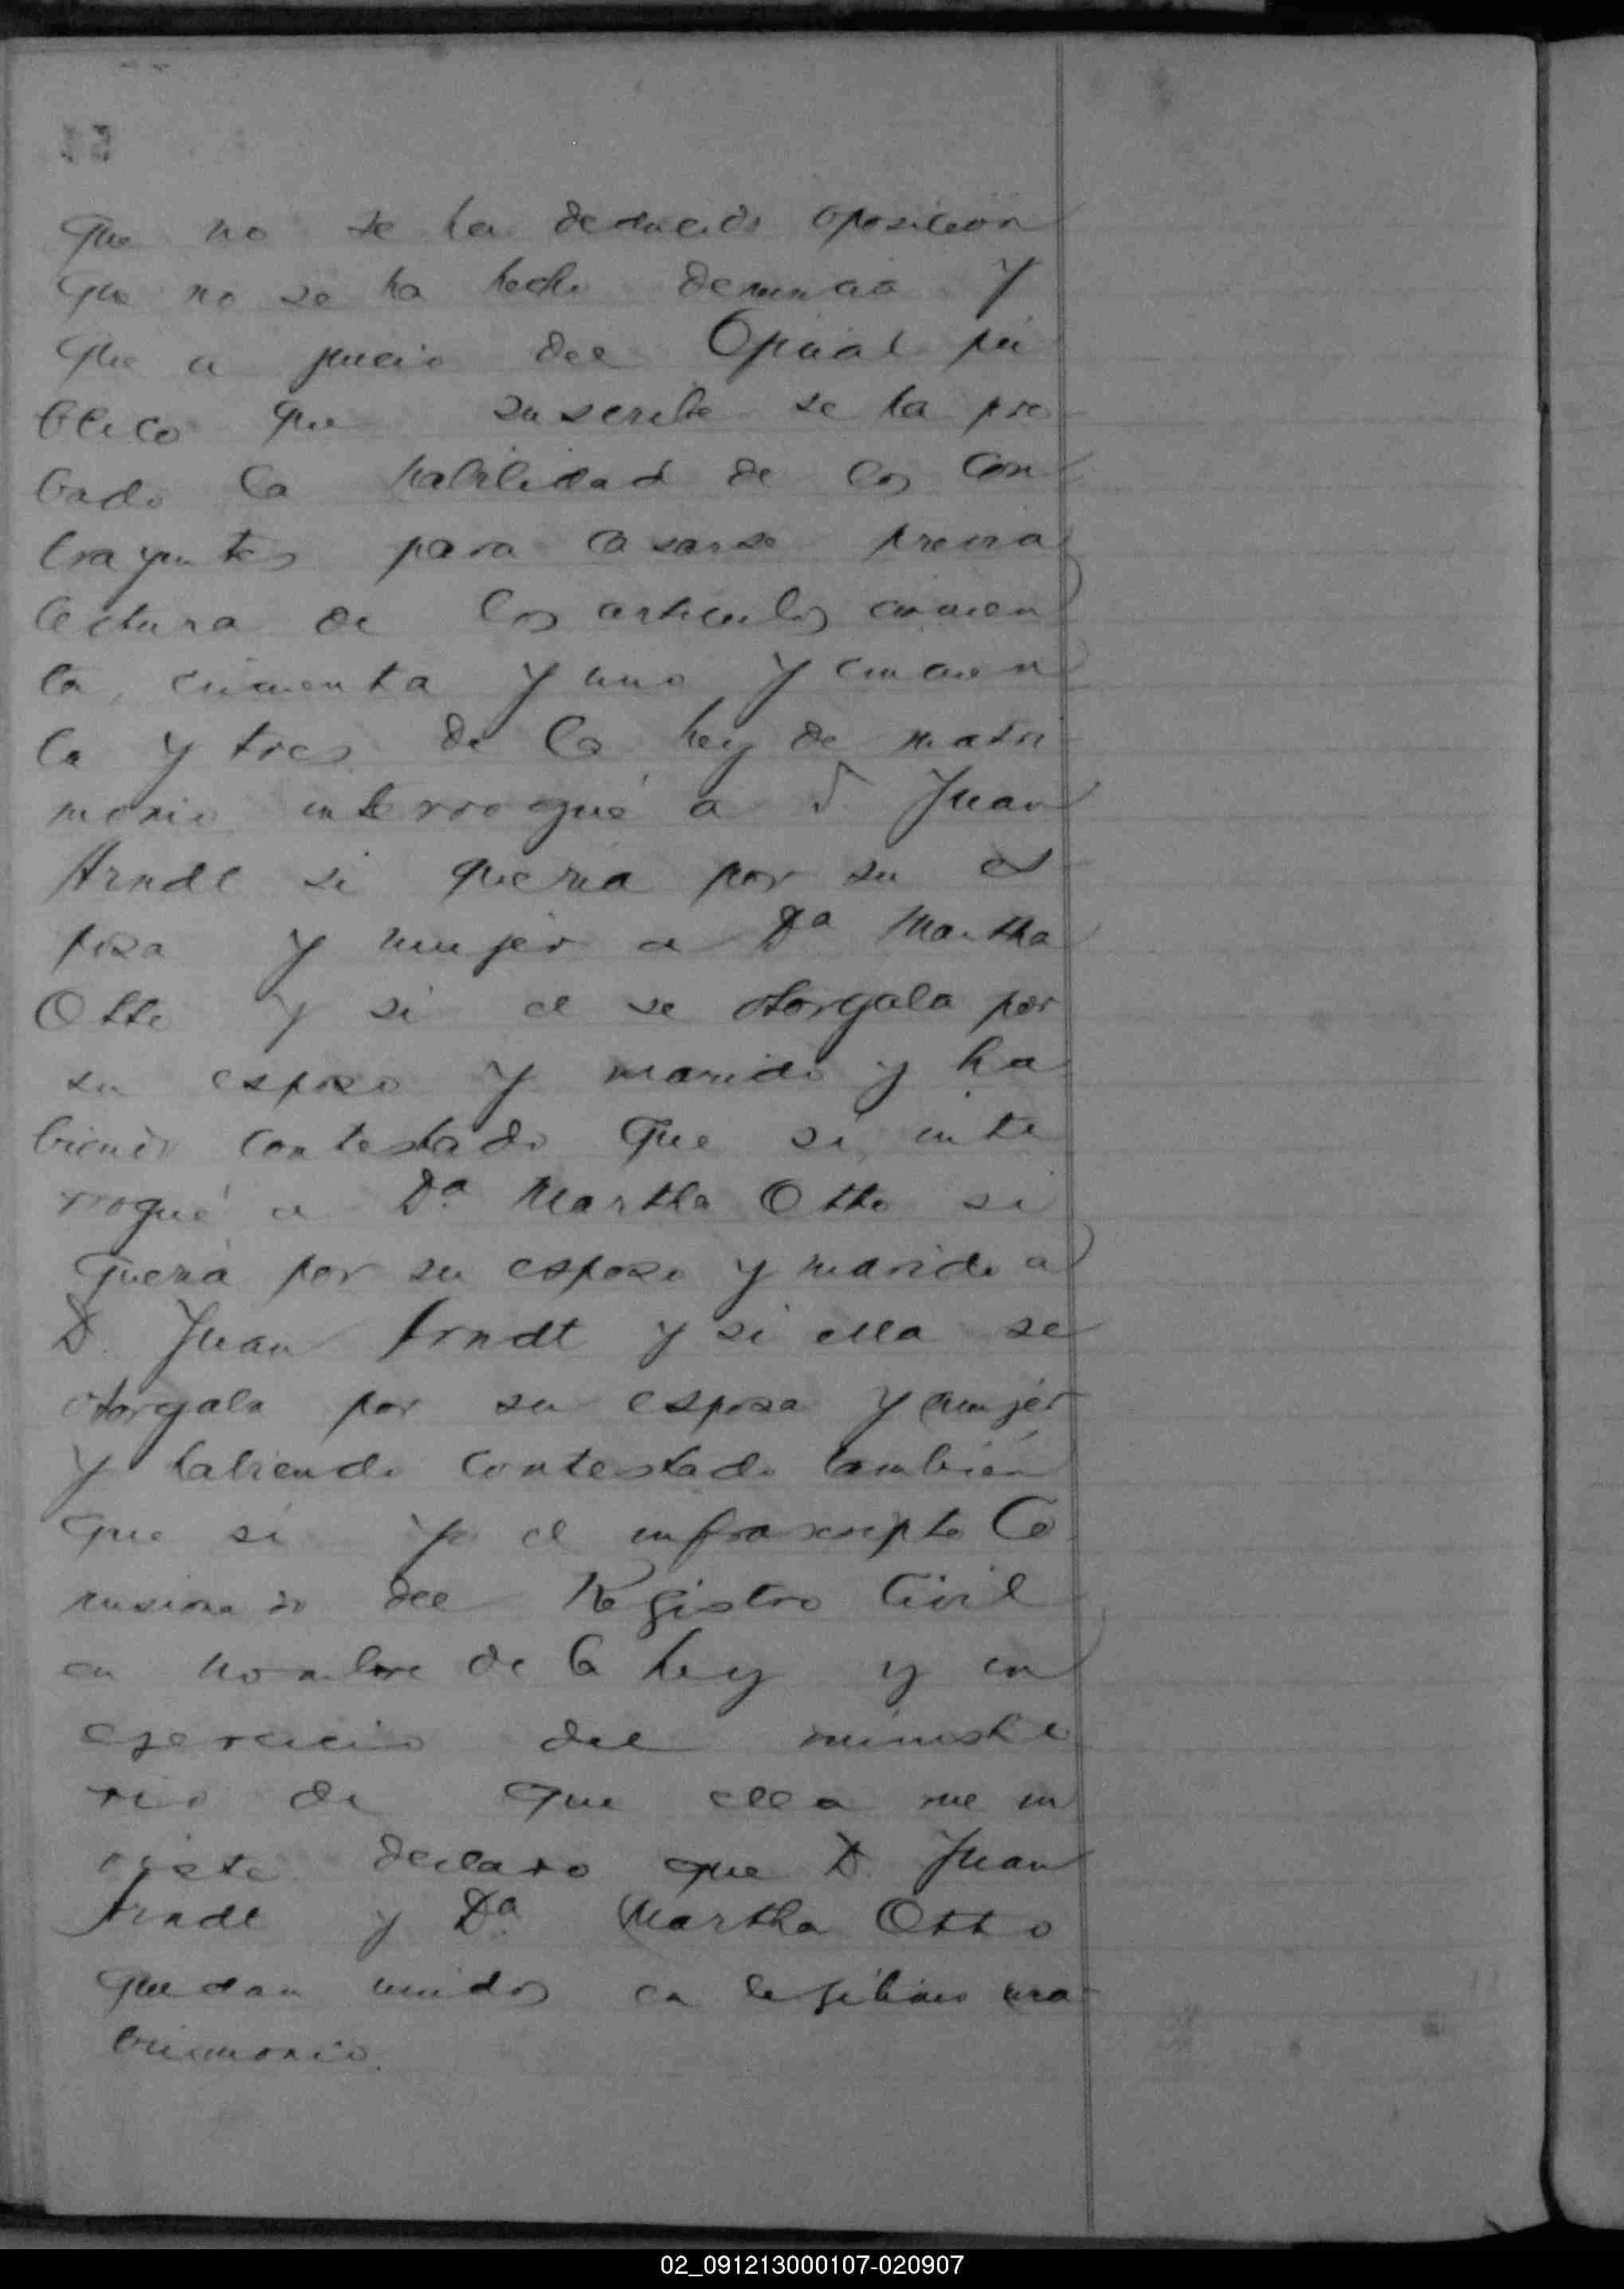 que no se ha deducido oposicion
que no se ha hecho denuncia y
que a juicio del Oficial pú
blico que suscribe se ha pro
bado la habilidad de los con
trayentes para casarse previa
lectura de los articulos cincuen
ta, cincuenta y uno y cincuen
ta y tres de la ley de matri
monio interrogué a D. Juan
Arndt si queria por su es
posa y mujer a Da Martha
Otto y si el se otorgala por
su esposo y marido y ha
biendo contestado que si, inte
rrogué a Da Martha Otto si
queria por su esposo y marido a
D. Juan Arndt y si ella se
otorgala por su esposa y mujer
y habiendo contestado tambien
que si yo el infrascripto Co
misionado del Registro Civil
en nombre de la ley y en
ejercicio del ministe
rio de que ella me in
viste declaro que D. Juan
Arndt y Da Martha Otto
quedan unidos en legitimo ma
trimonio.
02_091213000107-020907